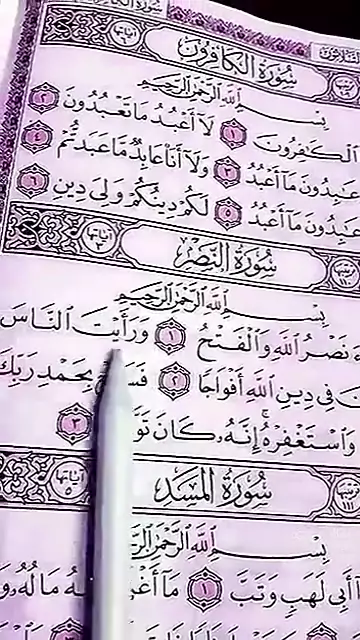 سُورَةُ الكَافِرُونَ
بِسْمِ ٱللَّهِ ٱلرَّحْمَٰنِ ٱلرَّحِيمِ
ٱلْكَٰفِرُونَ ١ لَآ أَعْبُدُ مَا تَعْبُدُونَ ٢
عَٰبِدُونَ مَآ أَعْبُدُ ٣ وَلَآ أَنَا۠ عَابِدٌ مَّا عَبَدتُّمْ ٤
عَٰبِدُونَ مَآ أَعْبُدُ ٥ لَكُمْ دِينُكُمْ وَلِىَ دِينِ ٦
سُورَةُ النَّصْرِ
بِسْمِ ٱللَّهِ ٱلرَّحْمَٰنِ ٱلرَّحِيمِ
نَصْرُ ٱللَّهِ وَٱلْفَتْحُ ١ وَرَأَيْتَ ٱلنَّاسَ
فِى دِينِ ٱللَّهِ أَفْوَاجًا ٢ بِحَمْدِ رَبِّكَ
وَٱسْتَغْفِرْهُ إِنَّهُۥ كَانَ ٣
سُورَةُ المَسَدِ
بِسْمِ ٱللَّهِ ٱلرَّحْمَٰنِ
أَبِى لَهَبٍ وَتَبَّ ١ مَآ مَالُهُۥ